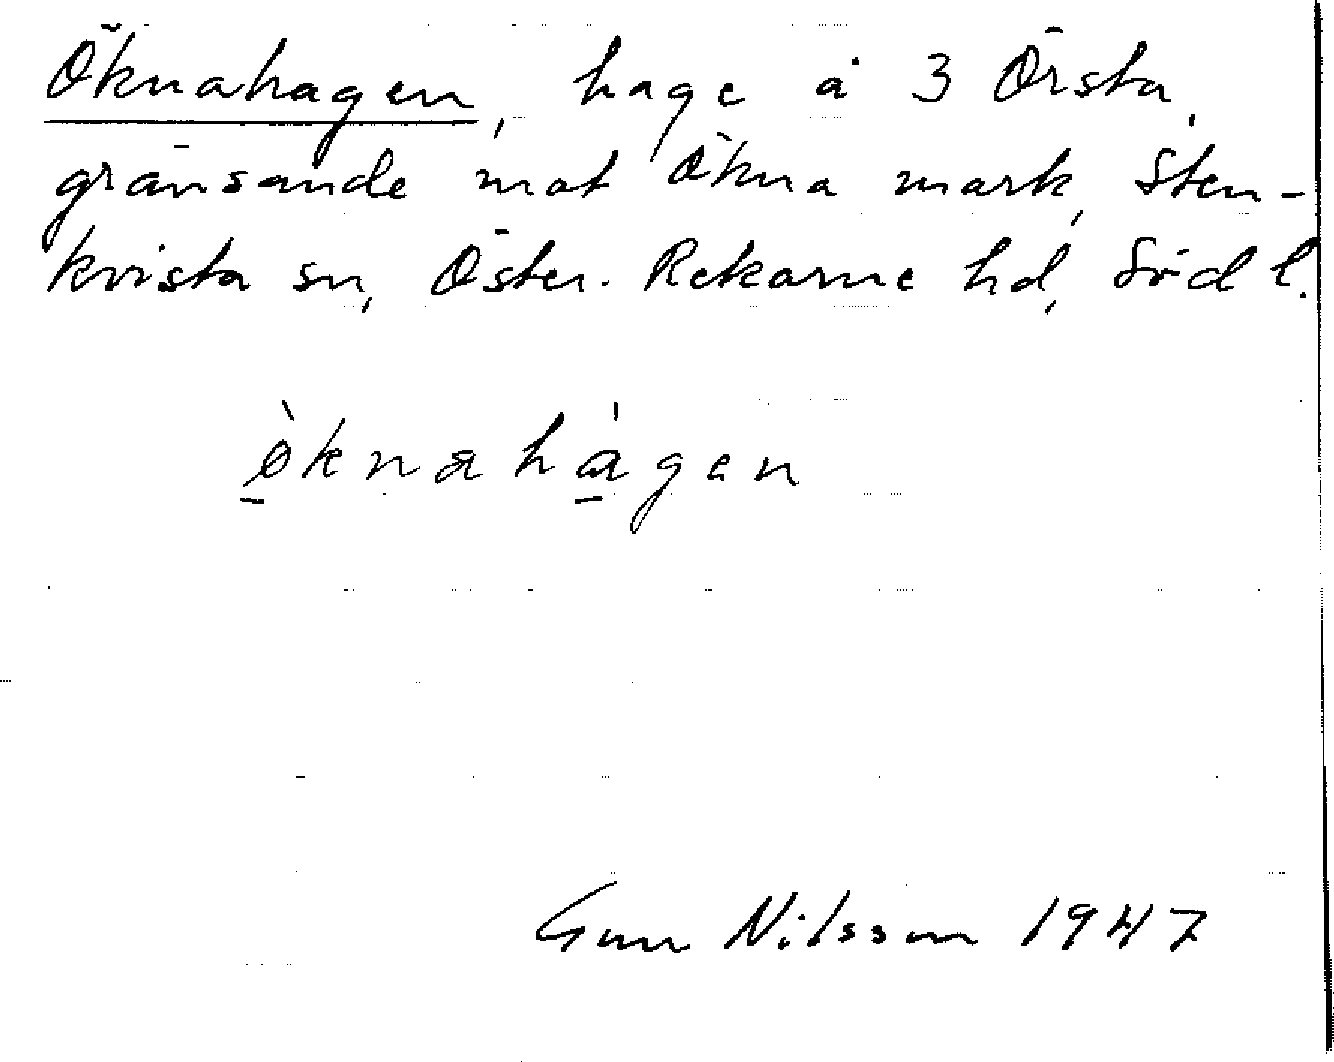 Öknahagen, hage å 3 Örsta,
gränsande mot Ökna mark, Sten-
kvista sn, Öster-Rekarne hd, Söd l.
ø̀knahàgen
Gun Nilsson 1947